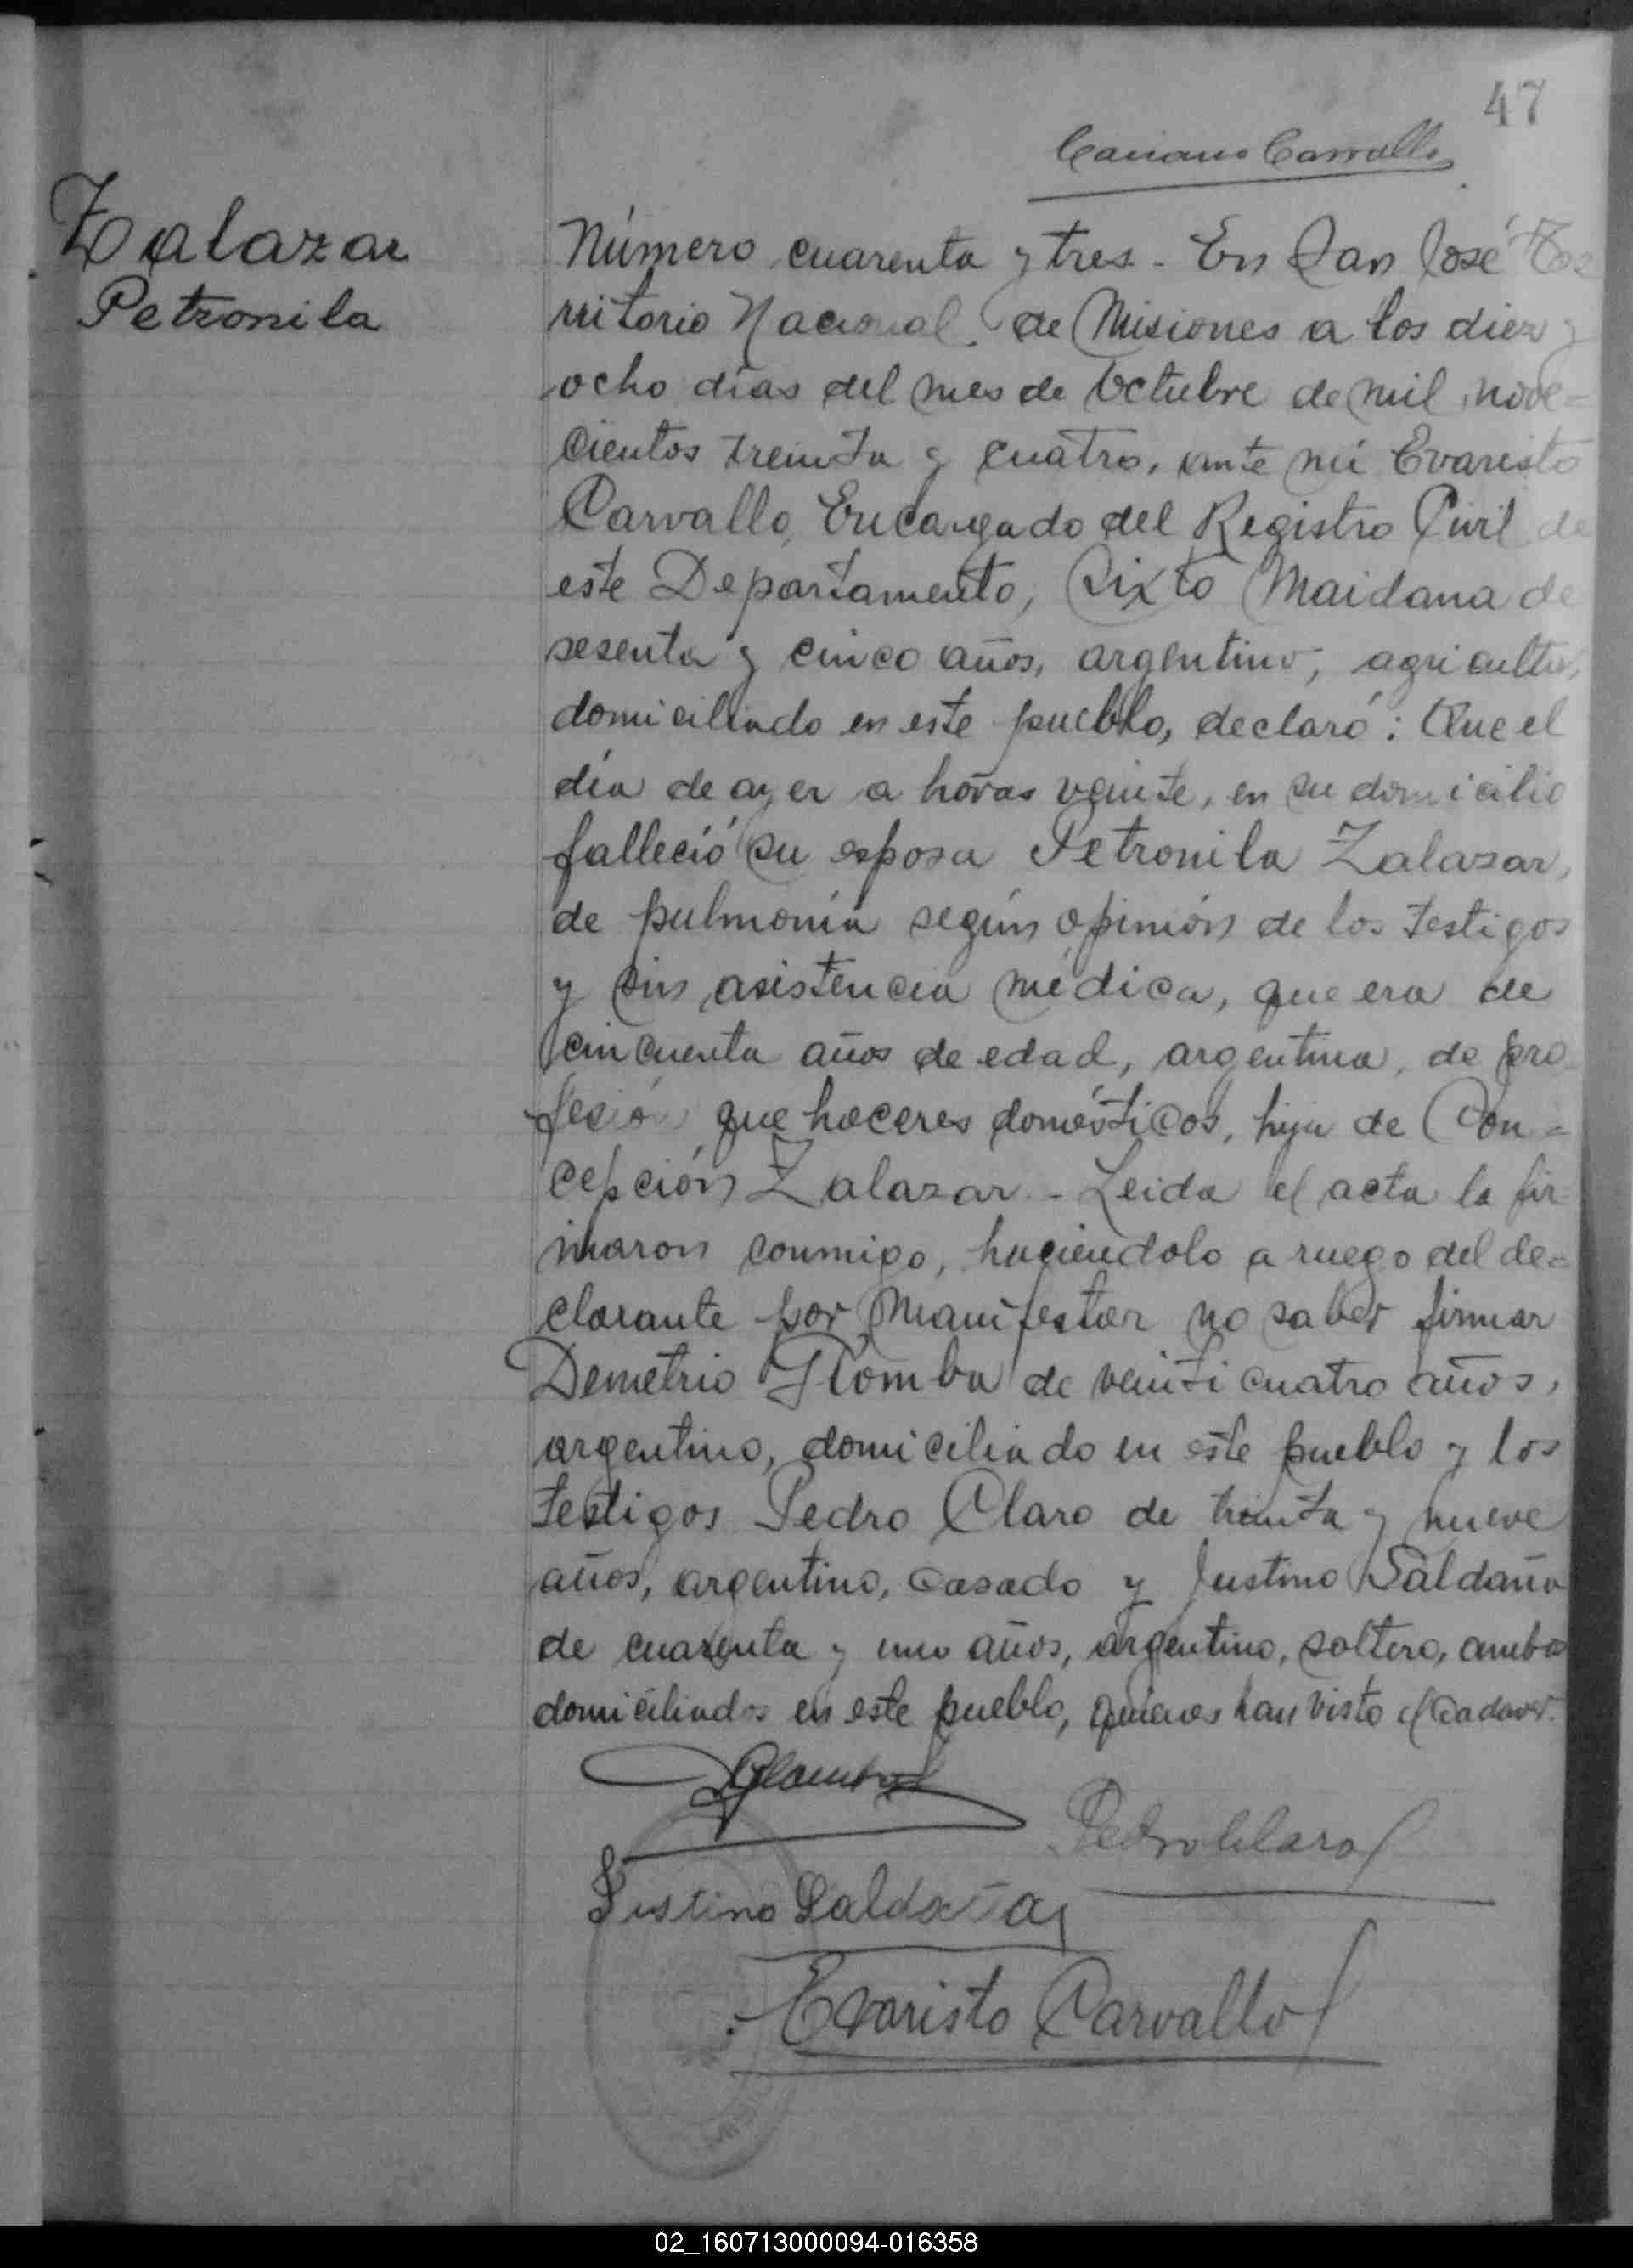 47
Carvallo
Zalazar
Petronila
Número cuarenta y tres - En San José Te
rritorio Nacional de Misiones a los diez y
ocho días del mes de Octubre de mil nove=
cientos treinta y cuatro, ante mi Evaristo
Carvallo, Encargado del Registro Civil de
este Departamento, Sixto Maidana de
sesenta y cinco años, argentino, agricultor,
domiciliado en este pueblo, declaró: Que el
día de ayer a horas veinte, en su domicilio
falleció su esposa Petronila Zalazar,
de pulmonía según opinión de los testigos
y sin asistencia médica, que era de
cincuenta años de edad, argentina, de pro
fesión que haceres domésticos, hija de Con=
cepción Zalazar - Leida el acta la fir=
maron conmigo, haciéndolo a ruego del de=
clarante por manifestar no saber firmar
Demetrio Glomba de veinticuatro años,
argentino, domiciliado en este pueblo y los
testigos Pedro Claro de treinta y nueve
años, argentino, casado y Justino Saldaña
de cuarenta y uno años, argentino, soltero, ambos
domiciliados en este pueblo, quienes han visto el cadaver.
Pedro Claro
Justino Saldaña
Evaristo Carvallo
02_160713000094-016358